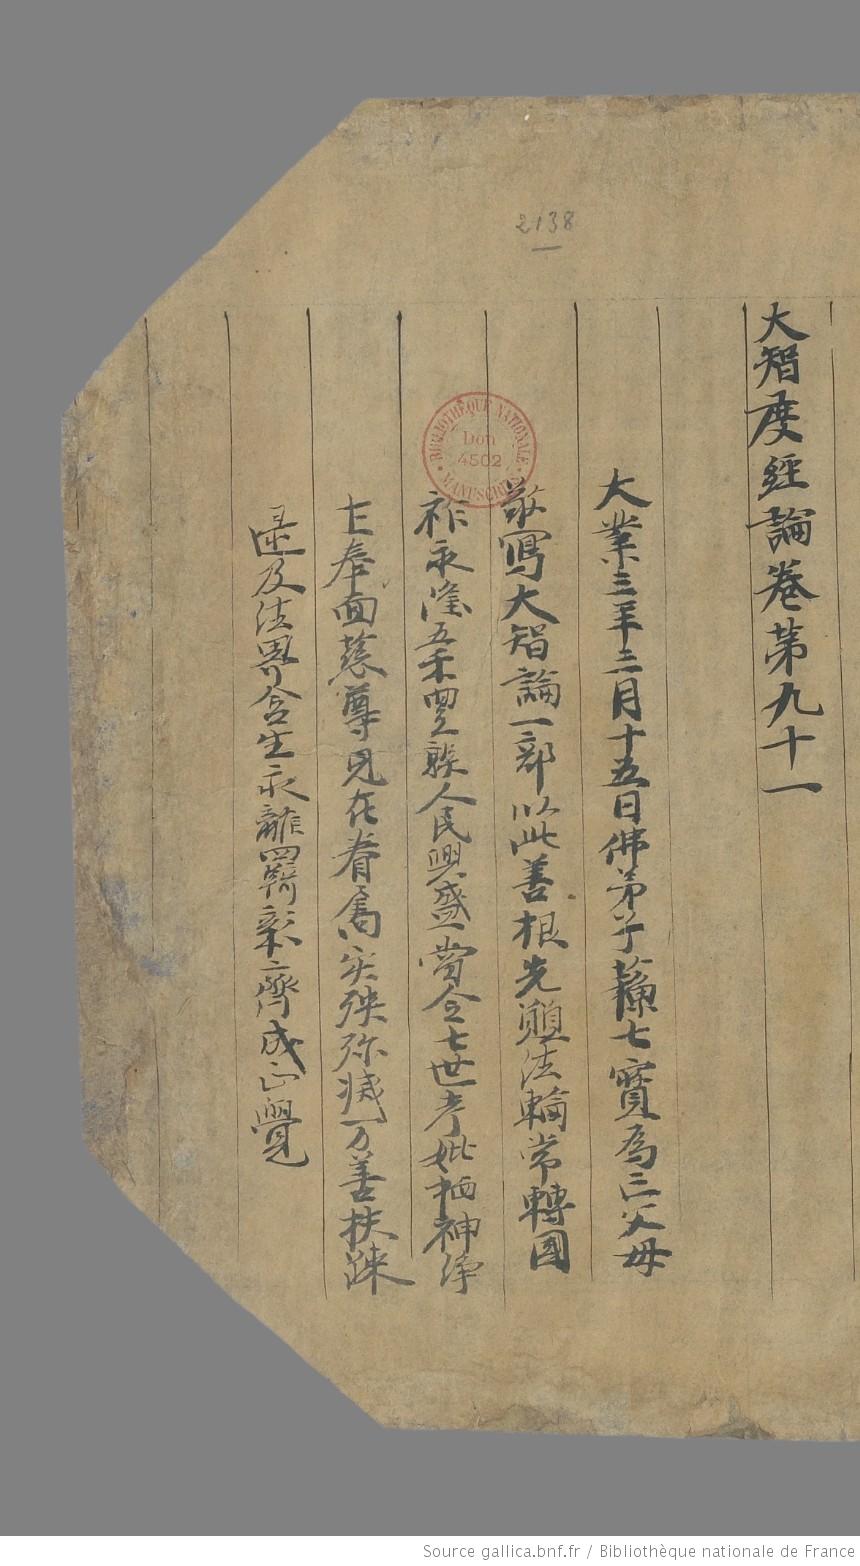 2138
大智度經論卷第九十一
大業三年三月十五日佛弟子蘇七寶為亡父母
敬寫大智論一部以此善根先願法輪常轉國
祚永隆五禾豐熟人民興盛當令七世考妣栖神淨
土奉面慈尊見在眷屬灾殃弥滅万善扶疎
逮及法界含生永離羈彰齊成正覺
BIBLIOTHÈQUE NATIONALE
Don
4502
MANUSCRITS
Source gallica.bnf.fr / Bibliothèque nationale de France